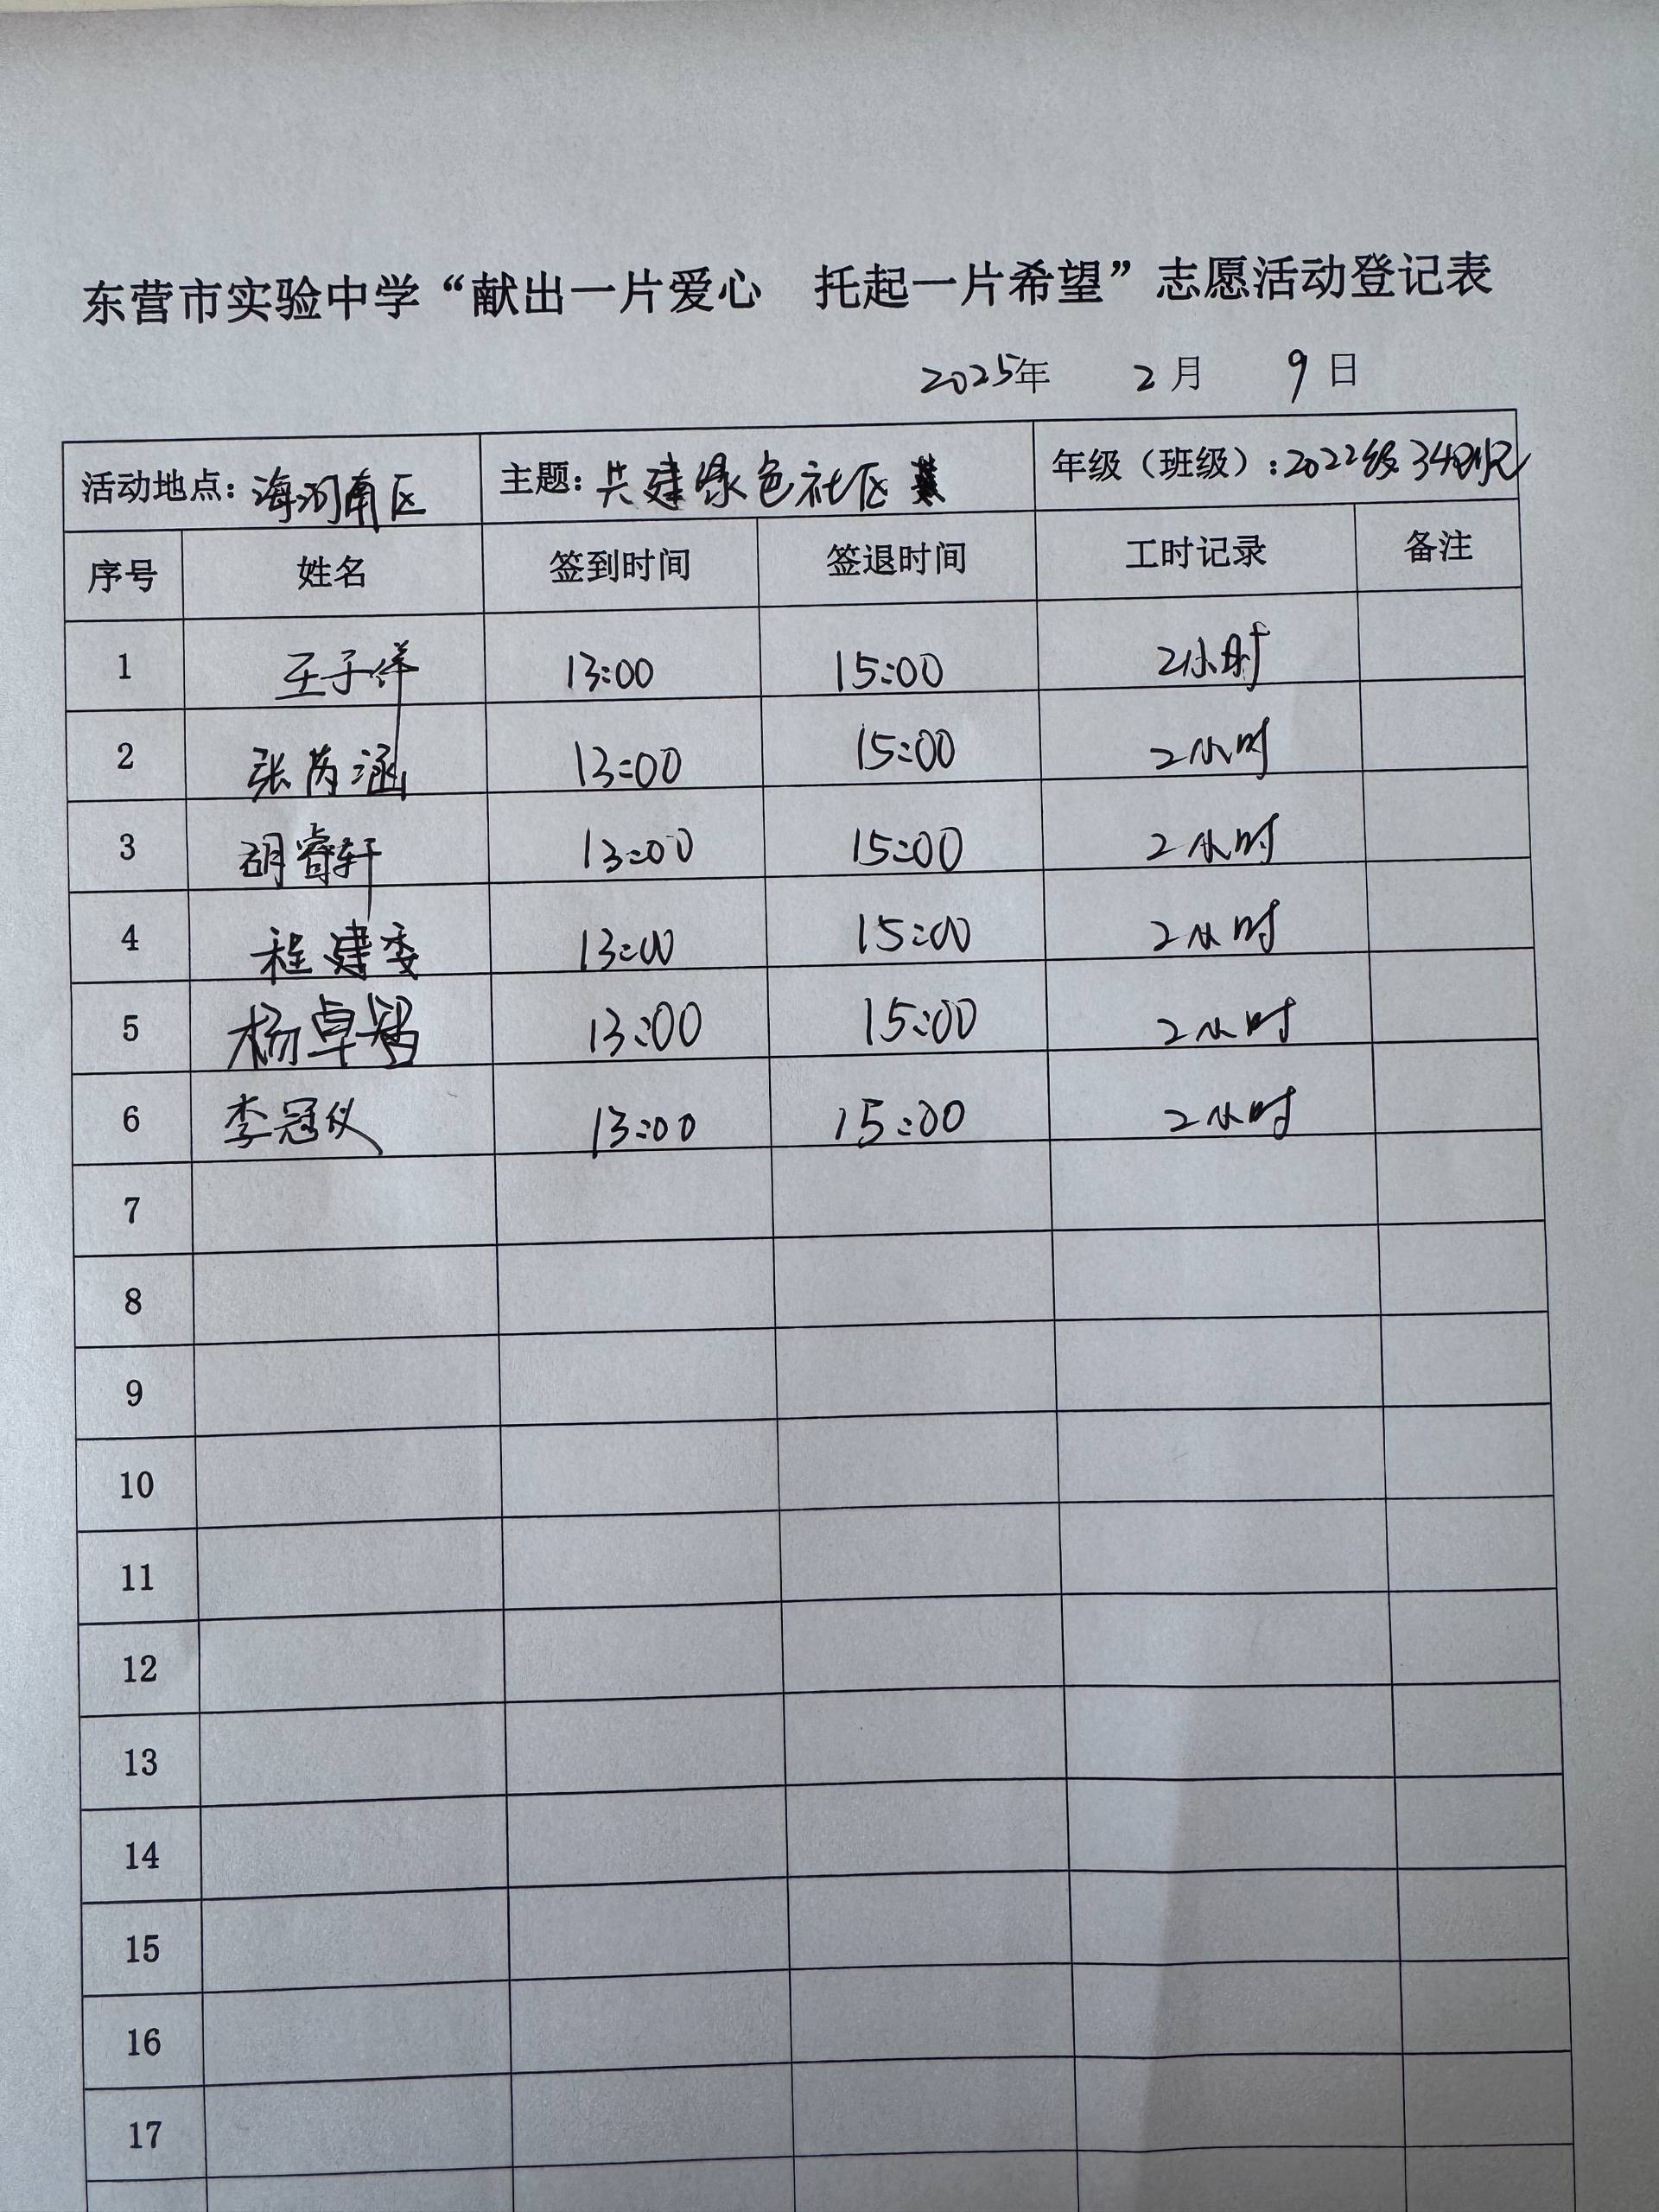 东营市实验中学“献出一片爱心 托起一片希望”志愿活动登记表
2025年 2月 9日
活动地点：海河南区 主题：共建绿色社区 年级（班级）：2022级34班
序号 姓名 签到时间 签退时间 工时记录 备注
1 王子祥 13:00 15:00 2小时
2 张芮涵 13:00 15:00 2小时
3 胡睿轩 13:00 15:00 2小时
4 程建委 13:00 15:00 2小时
5 杨卓智 13:00 15:00 2小时
6 李冠仪 13:00 15:00 2小时
7
8
9
10
11
12
13
14
15
16
17